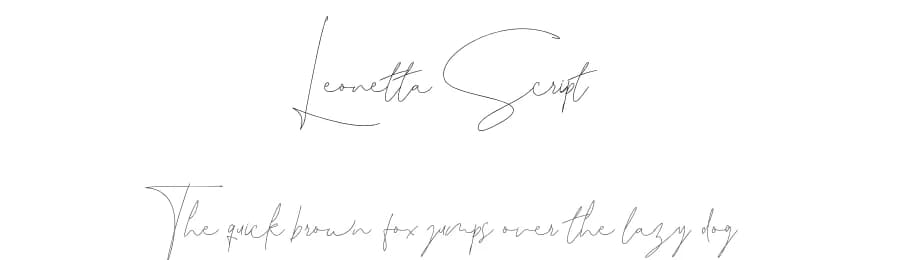 Leonetta Script
The quick brown fox jumps over the lazy dog